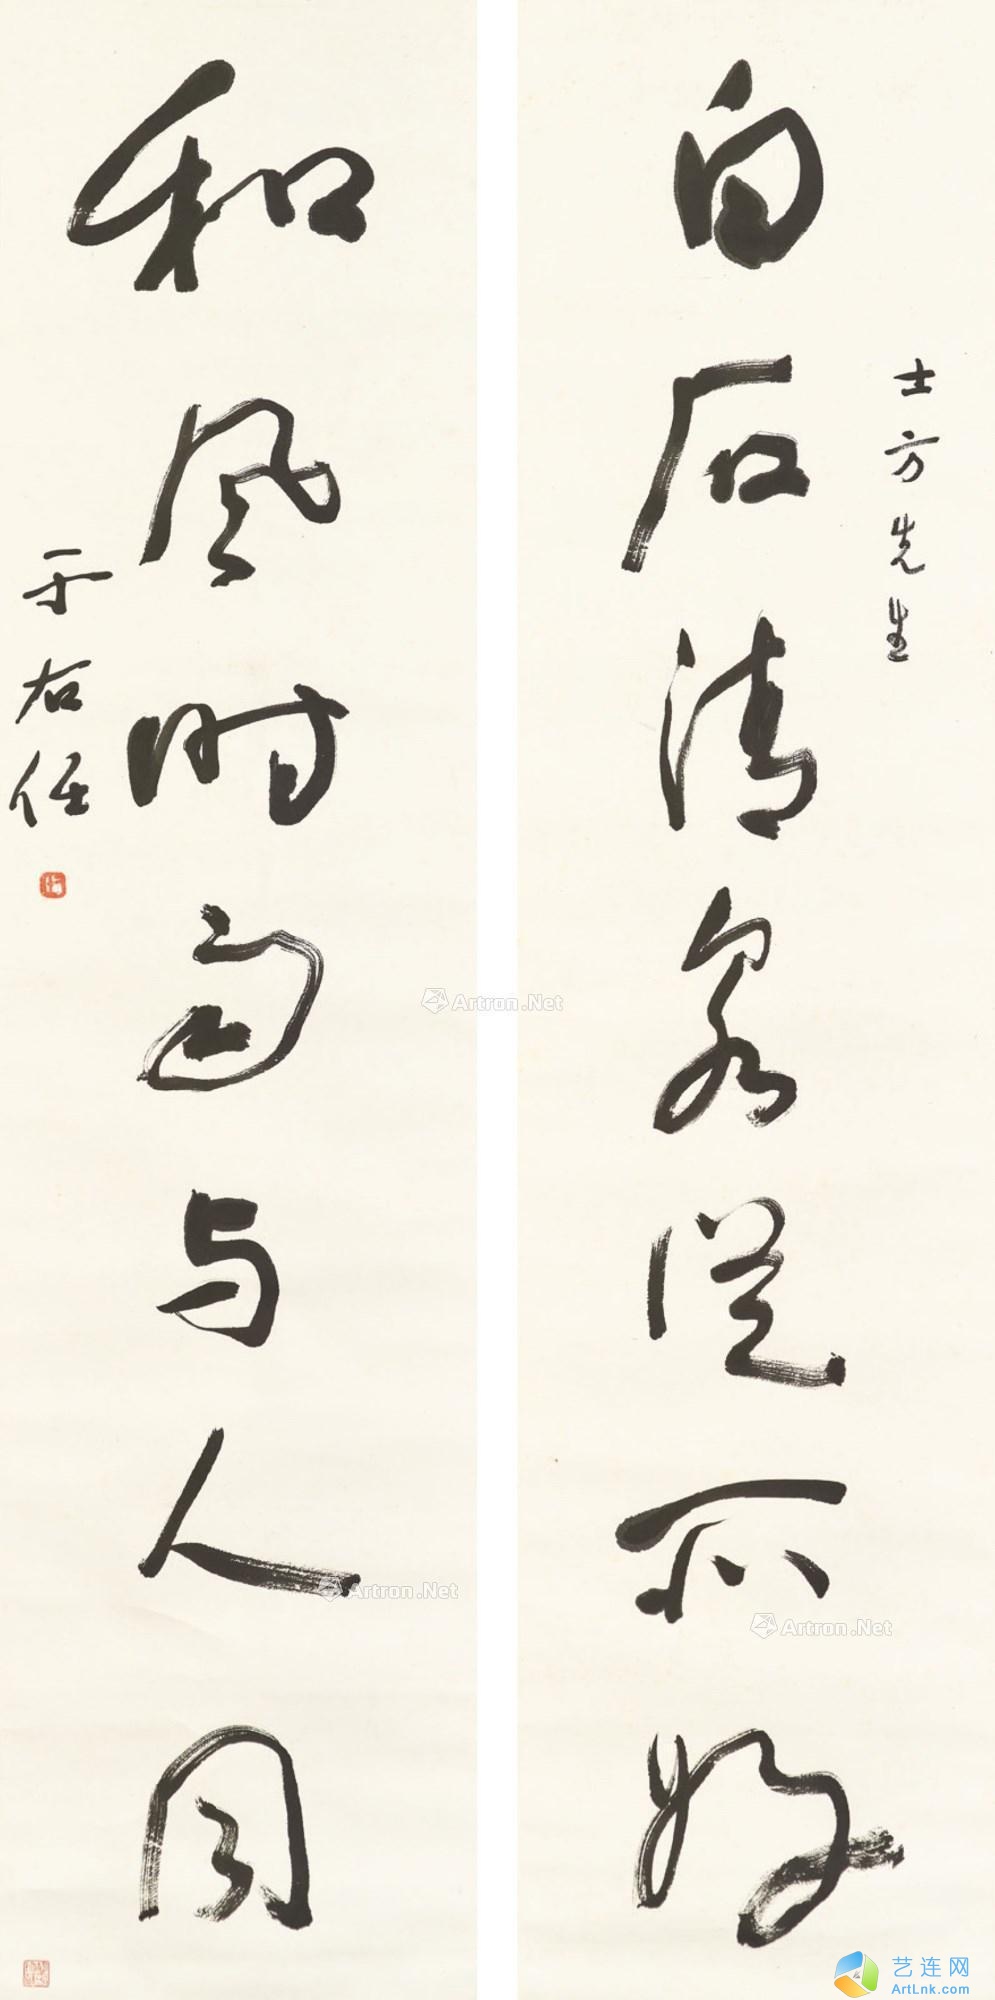 士方先生
白石清泉從所好
和风时雨与人同
于右任
Artron.Net
Artron.Net
Artron.Net
艺连网
ArtLnk.com